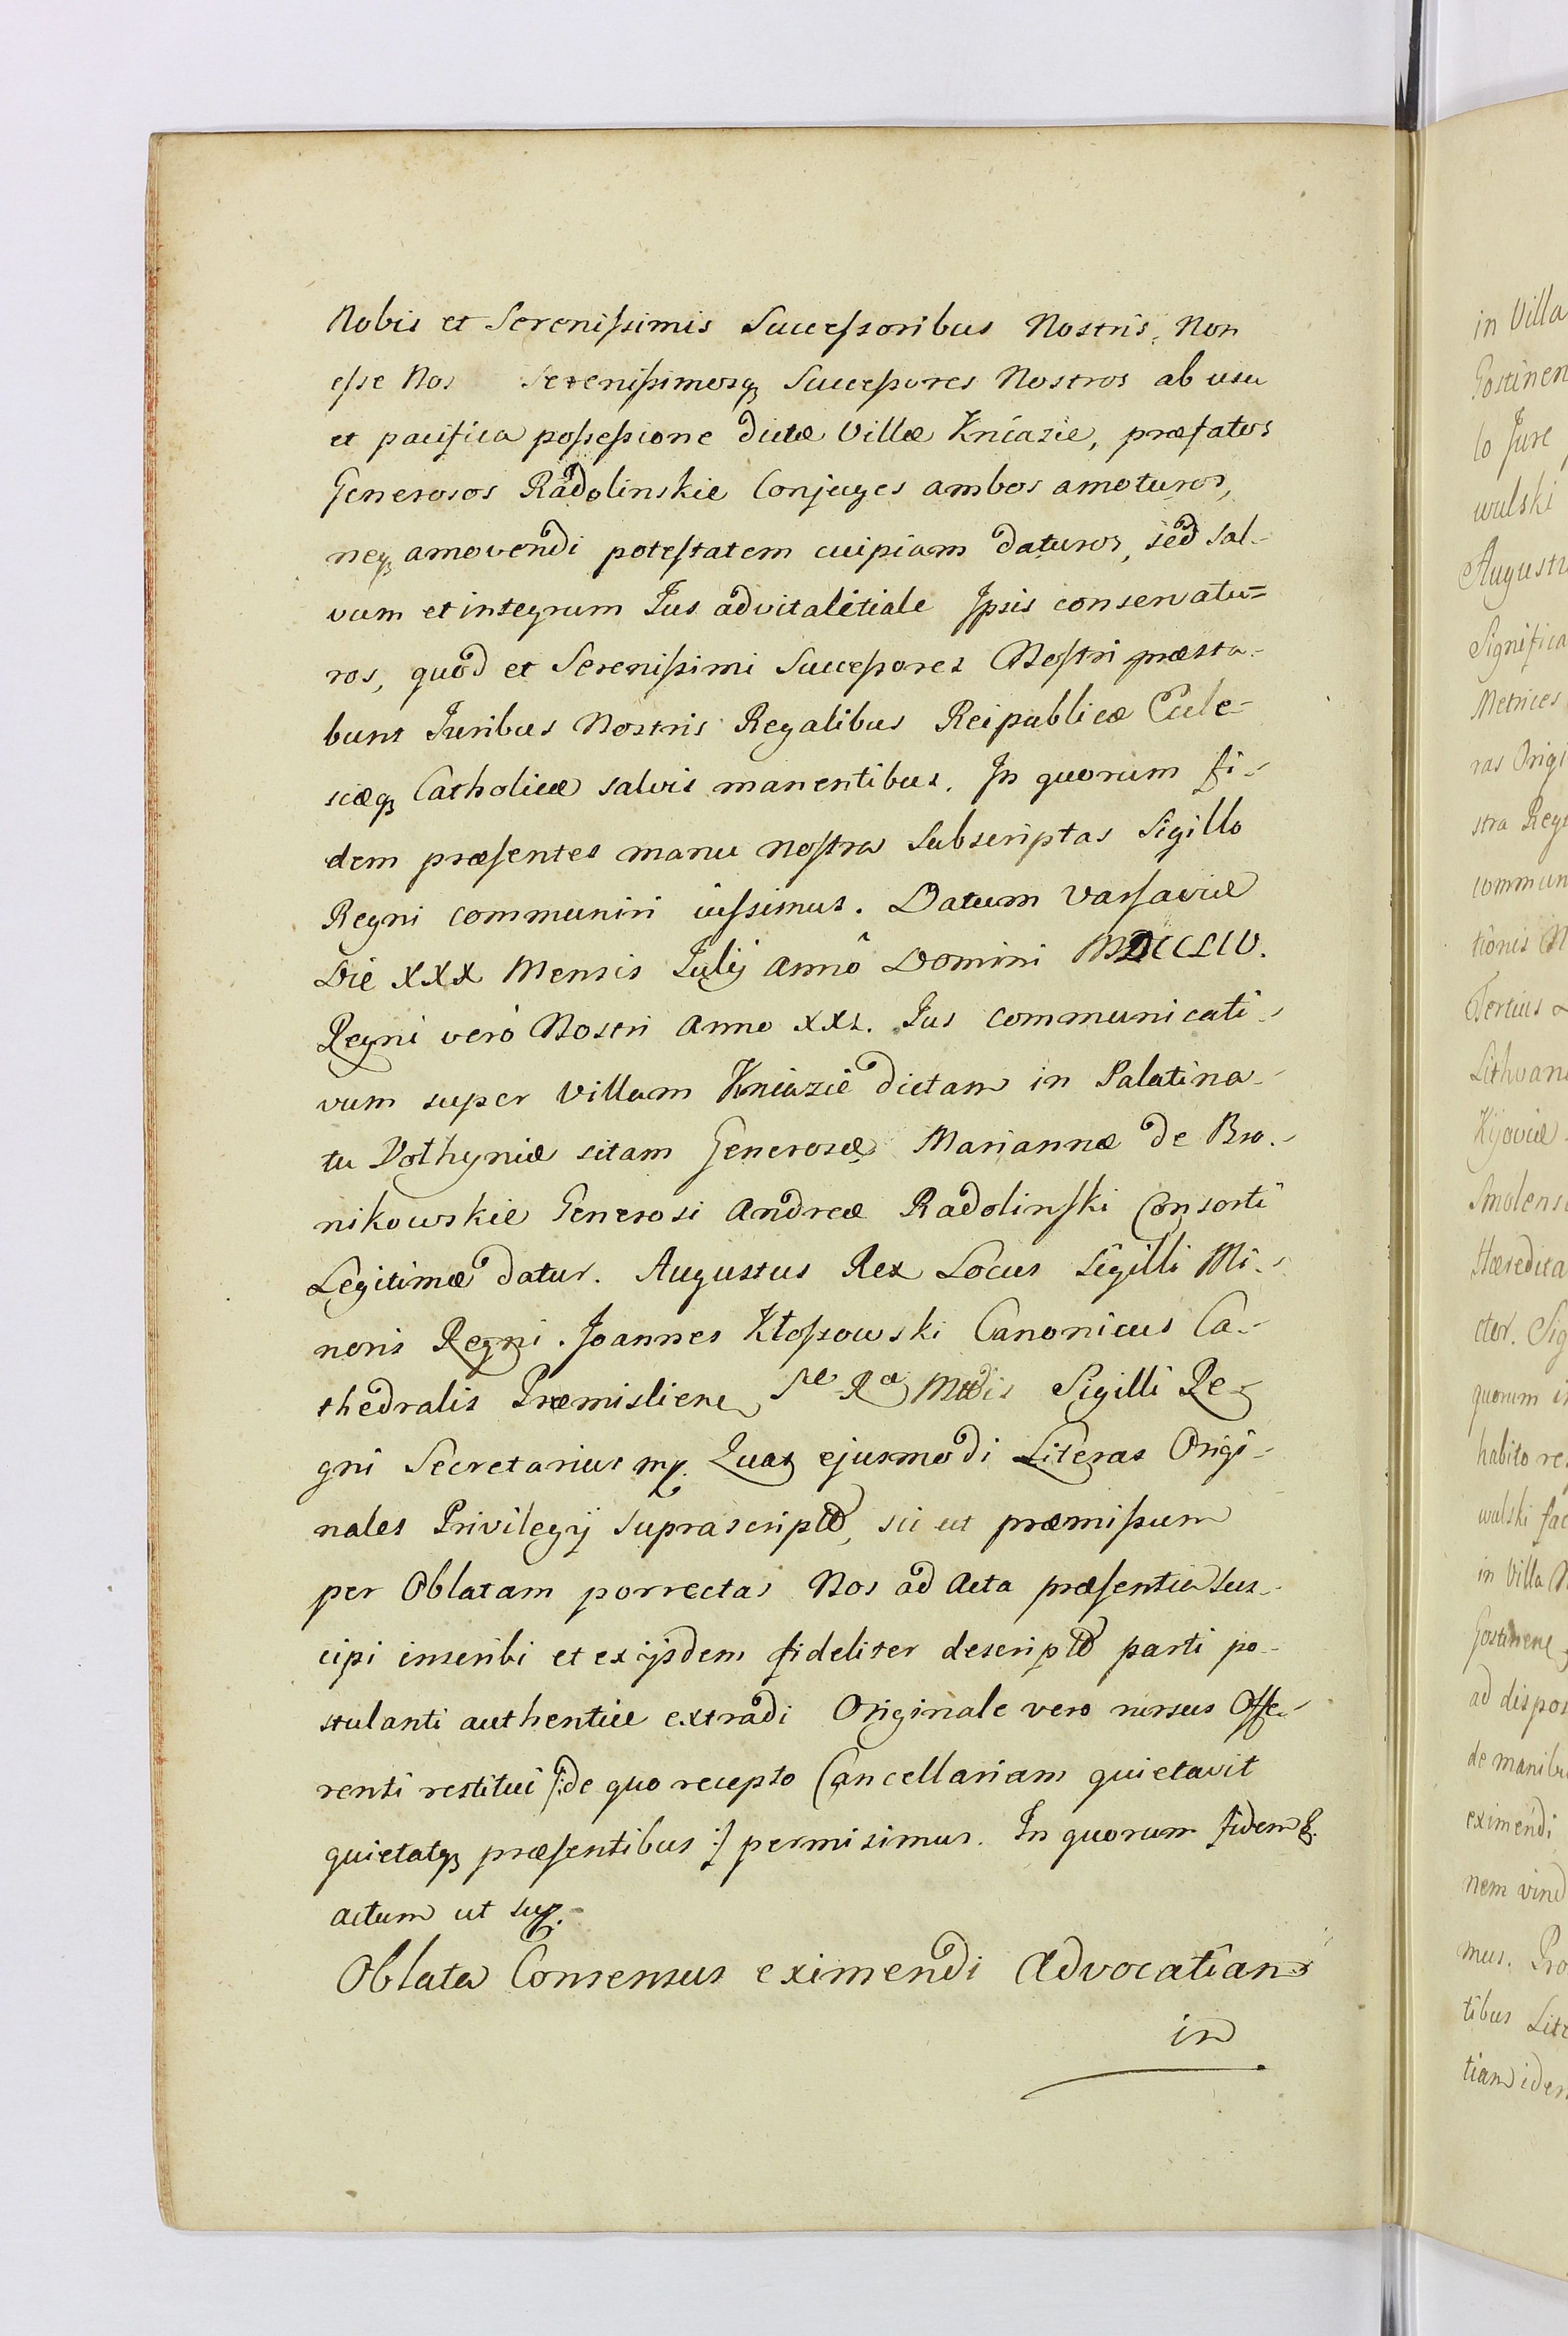 Nobis et Serenissimis Successoribus Nostris, Non
esse Nos Serenissimosq3 Successores Nostros ab usu
et pacifica possessione dictæ Villæ Kniazie, præfatos
Generosos Radolinskie Conjuges ambos amoturos,
neq3 amovendi potestatem cuipiam daturos, sed sal-
vum et integrum Jus advitalitiale Ipsis conservatu=
ros, quod et Serenissimi Successores Nostri præsta-
bunt Juribus Nostris Regalibus Reipublicæ Eccle-
siæq3 Catholicæ salvis manentibus. In quorum fi-
dem præsentes manu nostra Subscriptas Sigillo
Regni communiri iussimus. Datum Varsaviæ
Die XXX Mensis Julij annô Domini MDCCLIV.
Regni verò Nostri anno XXI. Jus communicati-
vum super Villam Kniazie dictam in Palatina-
tu Volhyniæ sitam Generosæ Mariannæ de Bro-
nikowskie Generosi Andreæ Radolinski Consorti
Legitimæ datur. Augustus Rex Locus Sigilli Mi-
noris Regni. Joannes Kłossowski Canonicus Ca-
thedralis Præmislien Sæ Ræ Mttis Sigilli Re-
gni Secretarius mp. Quas ejusmodi Literas Origi-
nales Privilegij supra script, sic ut præmissum
per Oblatam porrectas Nos ad Acta præsentia sus-
cipi inscribi et ex ijsdem fideliter descript parti po-
stulanti authentice extradi Originale vero rursus Offe-
renti restitui /:de quo recepto Cancellariam quietavit
quietatq3 præsentibus :/ permisimus. In quorum fidem &.
actum ut sup.
Oblata Consensus eximendi Advocatiam
in
in Villa
Gostinen
lo Jure
wulski
Augustu
Significa
Metrices
ras Origi
stra Regi
commun
tionis M
Tertius
Lithvani
Kijoviæ
Smolens
Hæredita
ctor. Sig
quorum i
habito re
wulski fac
in Villa
Gostinen
ad dispos
de manibu
eximendi
nem vind
mus. Pro
tibus Lite
tiam iden